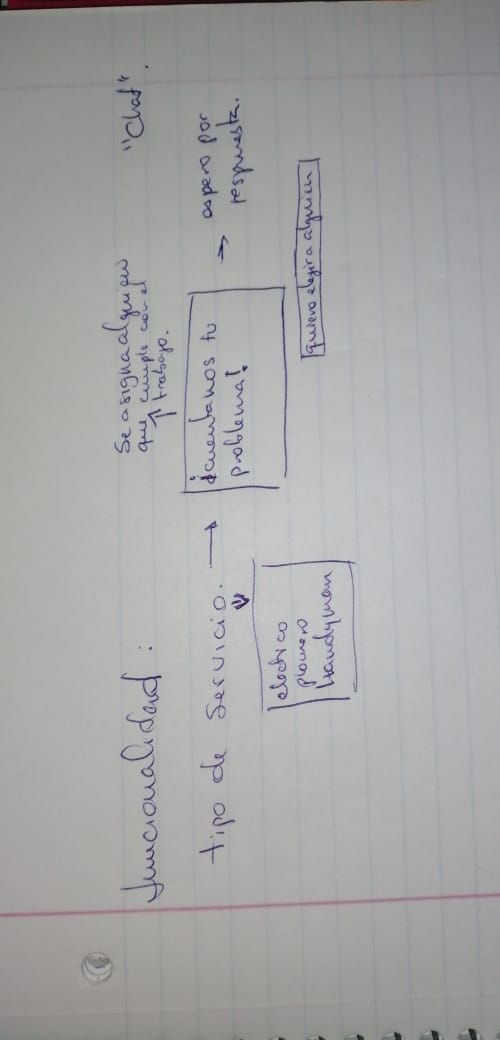 funcionalidad :
Se asigna alguien
que cumple con el
trabajo.
"Chat".
tipo de servicio. →
¡Cuentanos tu
problema!
→ espero por
respuesta.
electrico
plomero
Handyman
quiero elegir a alguien